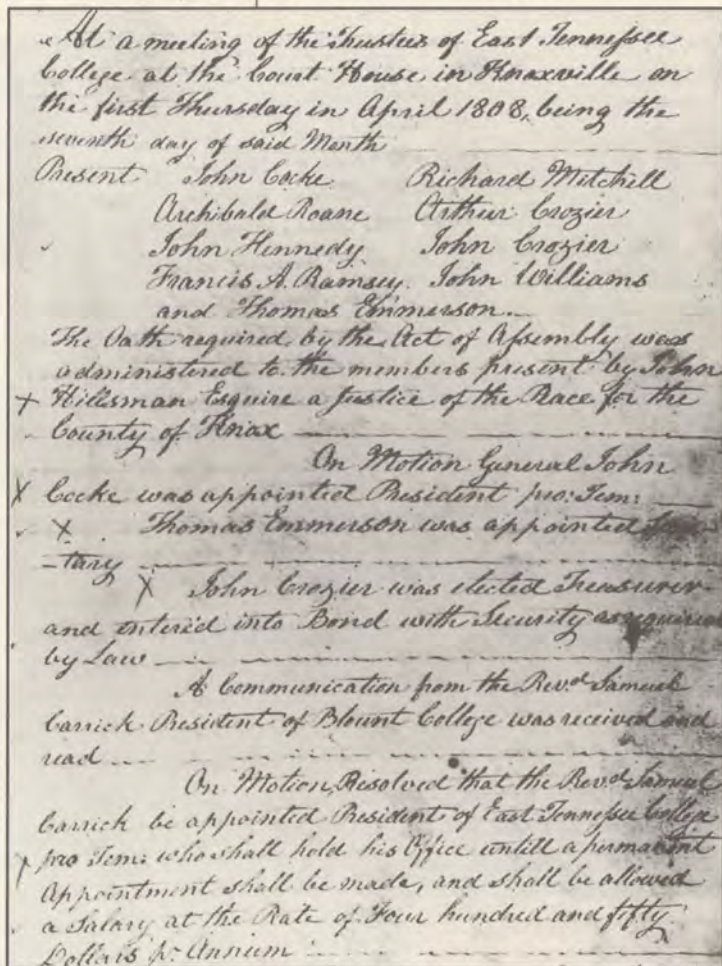 At a meeting of the Trustees of East Tennessee
College at the Court House in Knoxville on
the first Thursday in April 1808, being the
seventh day of said Month
Present John Cocke Richard Mitchell
Archibald Roane Arthur Crozier
John Kennedy John Crozier
Francis A. Ramsey John Williams
and Thomas Emmerson
The Oath required by the Act of Assembly was
administered to the members present by John
X Hillsman Esquire a Justice of the Peace for the
County of Knox
On Motion General John
X Cocke was appointed President pro: Tem:
X Thomas Emmerson was appointed
-tary
X John Crozier was elected Treasurer
and entered into Bond with Security as required
by Law
A Communication from the Revd Samuel
Carrick President of Blount College was received and
read
On Motion, Resolved that the Revd Samuel
Carrick be appointed President of East Tennessee College
X pro Tem: who shall hold his Office untill a permanent
Appointment shall be made, and shall be allowed
a Salary at the Rate of Four hundred and fifty
Dollars pr. Annum